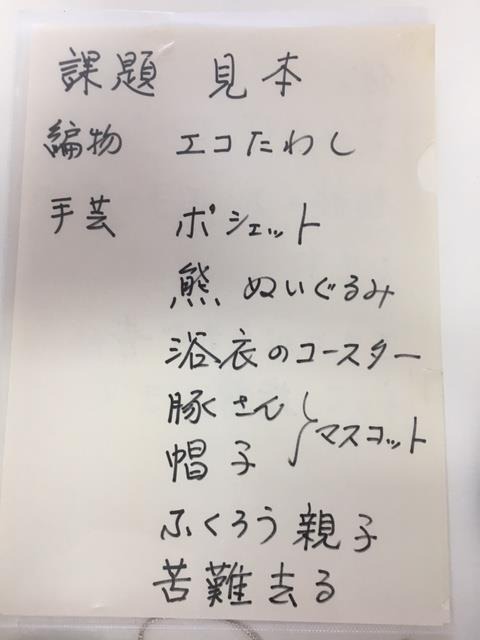 課題 見本
編物 エコたわし
手芸 ポシェット
熊 ぬいぐるみ
浴衣のコースター
豚さん
帽子
マスコット
ふくろう親子
苦難去る